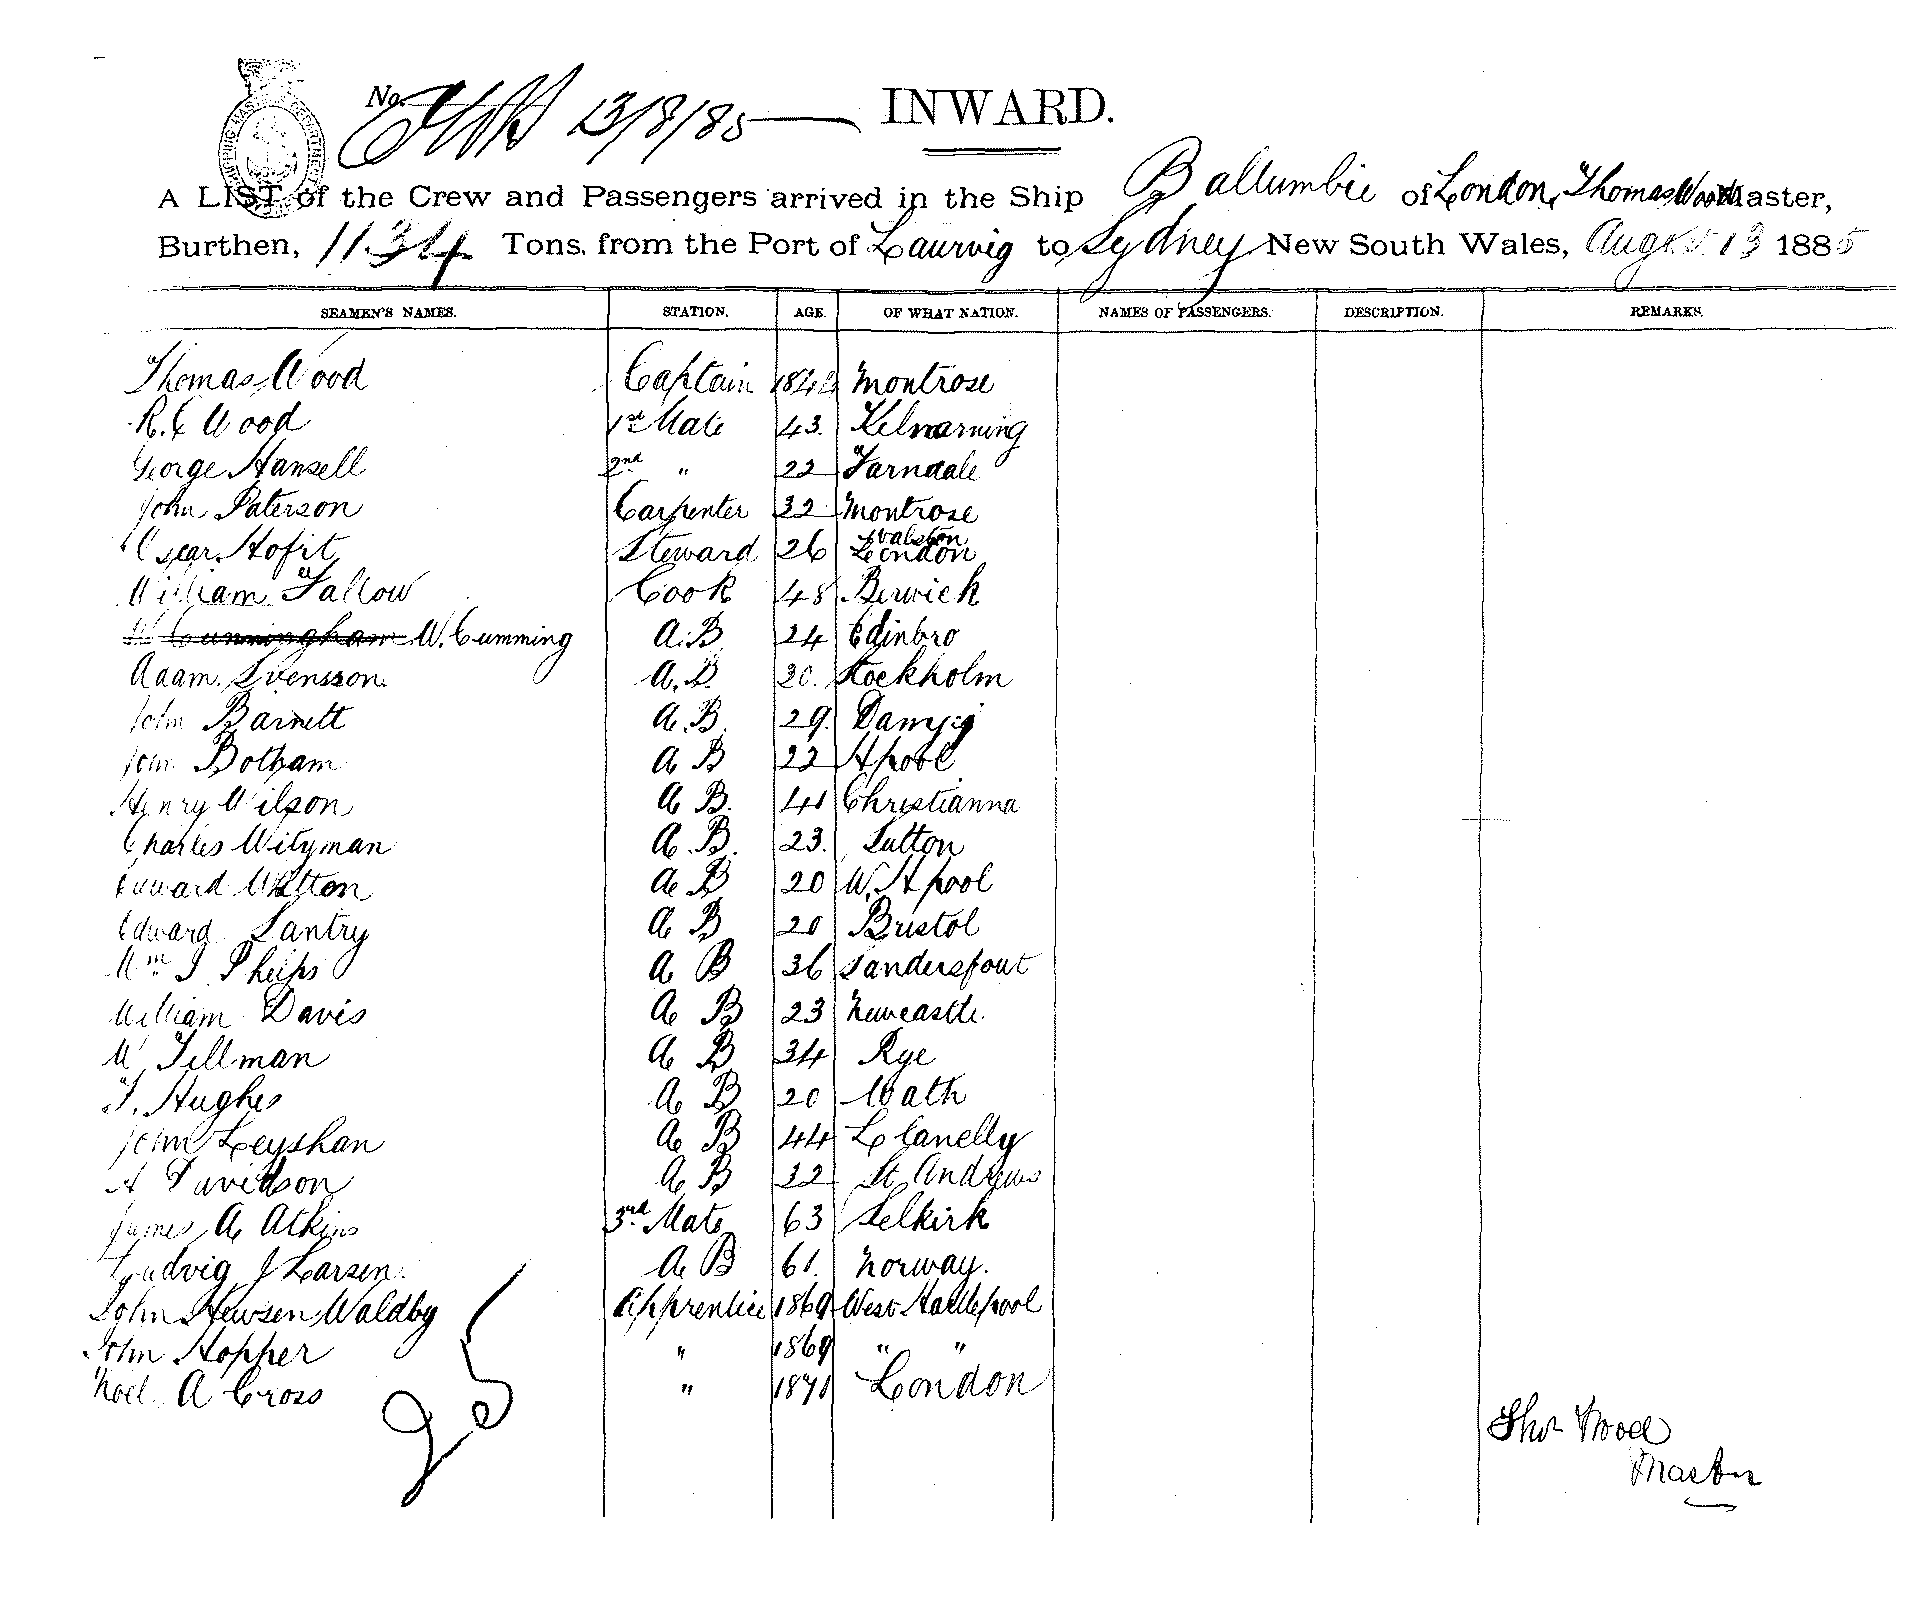 No. 13/8/85 INWARD.
A LIST of the Crew and Passengers arrived in the Ship Ballumbie of London, Thomas Wood Master,
Burthen, 1134 Tons, from the Port of Laurvig to Sydney New South Wales, Augst 13 1885
SEAMEN'S NAMES. STATION. AGE. OF WHAT NATION. NAMES OF PASSENGERS. DESCRIPTION. REMARKS.
Thomas Wood Captain 1842 Montrose
R. C Wood 1st Mate 43. Kelnarning
George Hansell 2nd " 22 Farndale
John Paterson Carpenter 32 Montrose
Oscar Hofit Steward 26 London Walston
William Fallow Cook 48 Berwick
W Cunningham W. Cumming A.B 24 Edinbro
Adam Svensson A.B 30. Stockholm
John Barnett A.B. 29. Danzig
John Botham A B 22 Hpool
Henry Wilson A B. 41 Christianna
Charles Wityman A.B. 23. Sutton
Edward Welton A B 20 W. Hpool
Edward Santry A B 20 Bristol
Wm J Phelps A B 36 Sandersfout
William Davis A B 23 Newcastle.
W Tillman A B 34 Rye
T. Hughes A B 20 Neath
John Leyshan A B 44 Llanelly
A Davidson A B 32 St Andrews
James A Atkins 3rd Mate 63 Selkirk
Ludvig J Larsen A B 61. Norway.
John Hewsen Waldby Apprentice 1869 West Hartlepool
John Hopper " 1869 " "
Noel A Cross " 1871 London
25
Thos Wood
Master